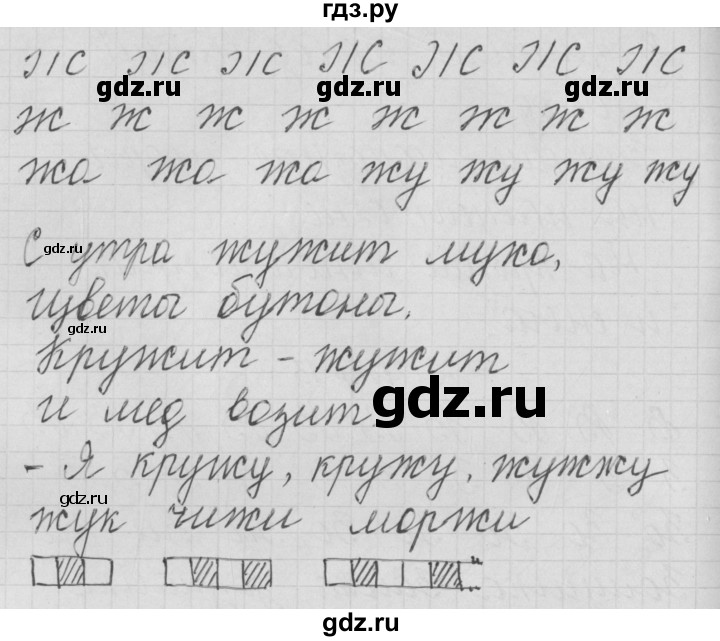 гдз.ру
Ж Ж Ж Ж Ж Ж Ж
gdz.ru gdz.ru gdz.ru
ж ж ж ж ж ж ж ж
жа жа жа жу жу жу жу
С утра жужжит муха,
gdz.ru
Цветы бутоны.
gdz.ru
Кружит - жужит
gdz.ru
и мед возит
- Я кружу, кружу, жужжу
gdz.ru
жук чижи моржи
gdz.ru gdz.ru